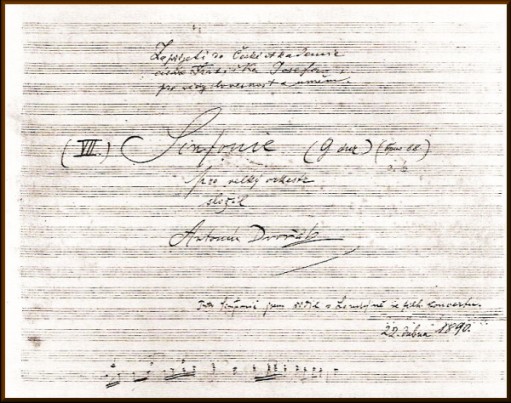 Za přijetí do České Akademie
císaře Františka Josefa
pro vědy slovesnost a umění.
(VII.) Sinfonie (G dur) (Opus 88.)
pro velký orkestr
složil
Antonín Dvořák
jsem řídil v Londýně concertu.
22. dubna 1890.